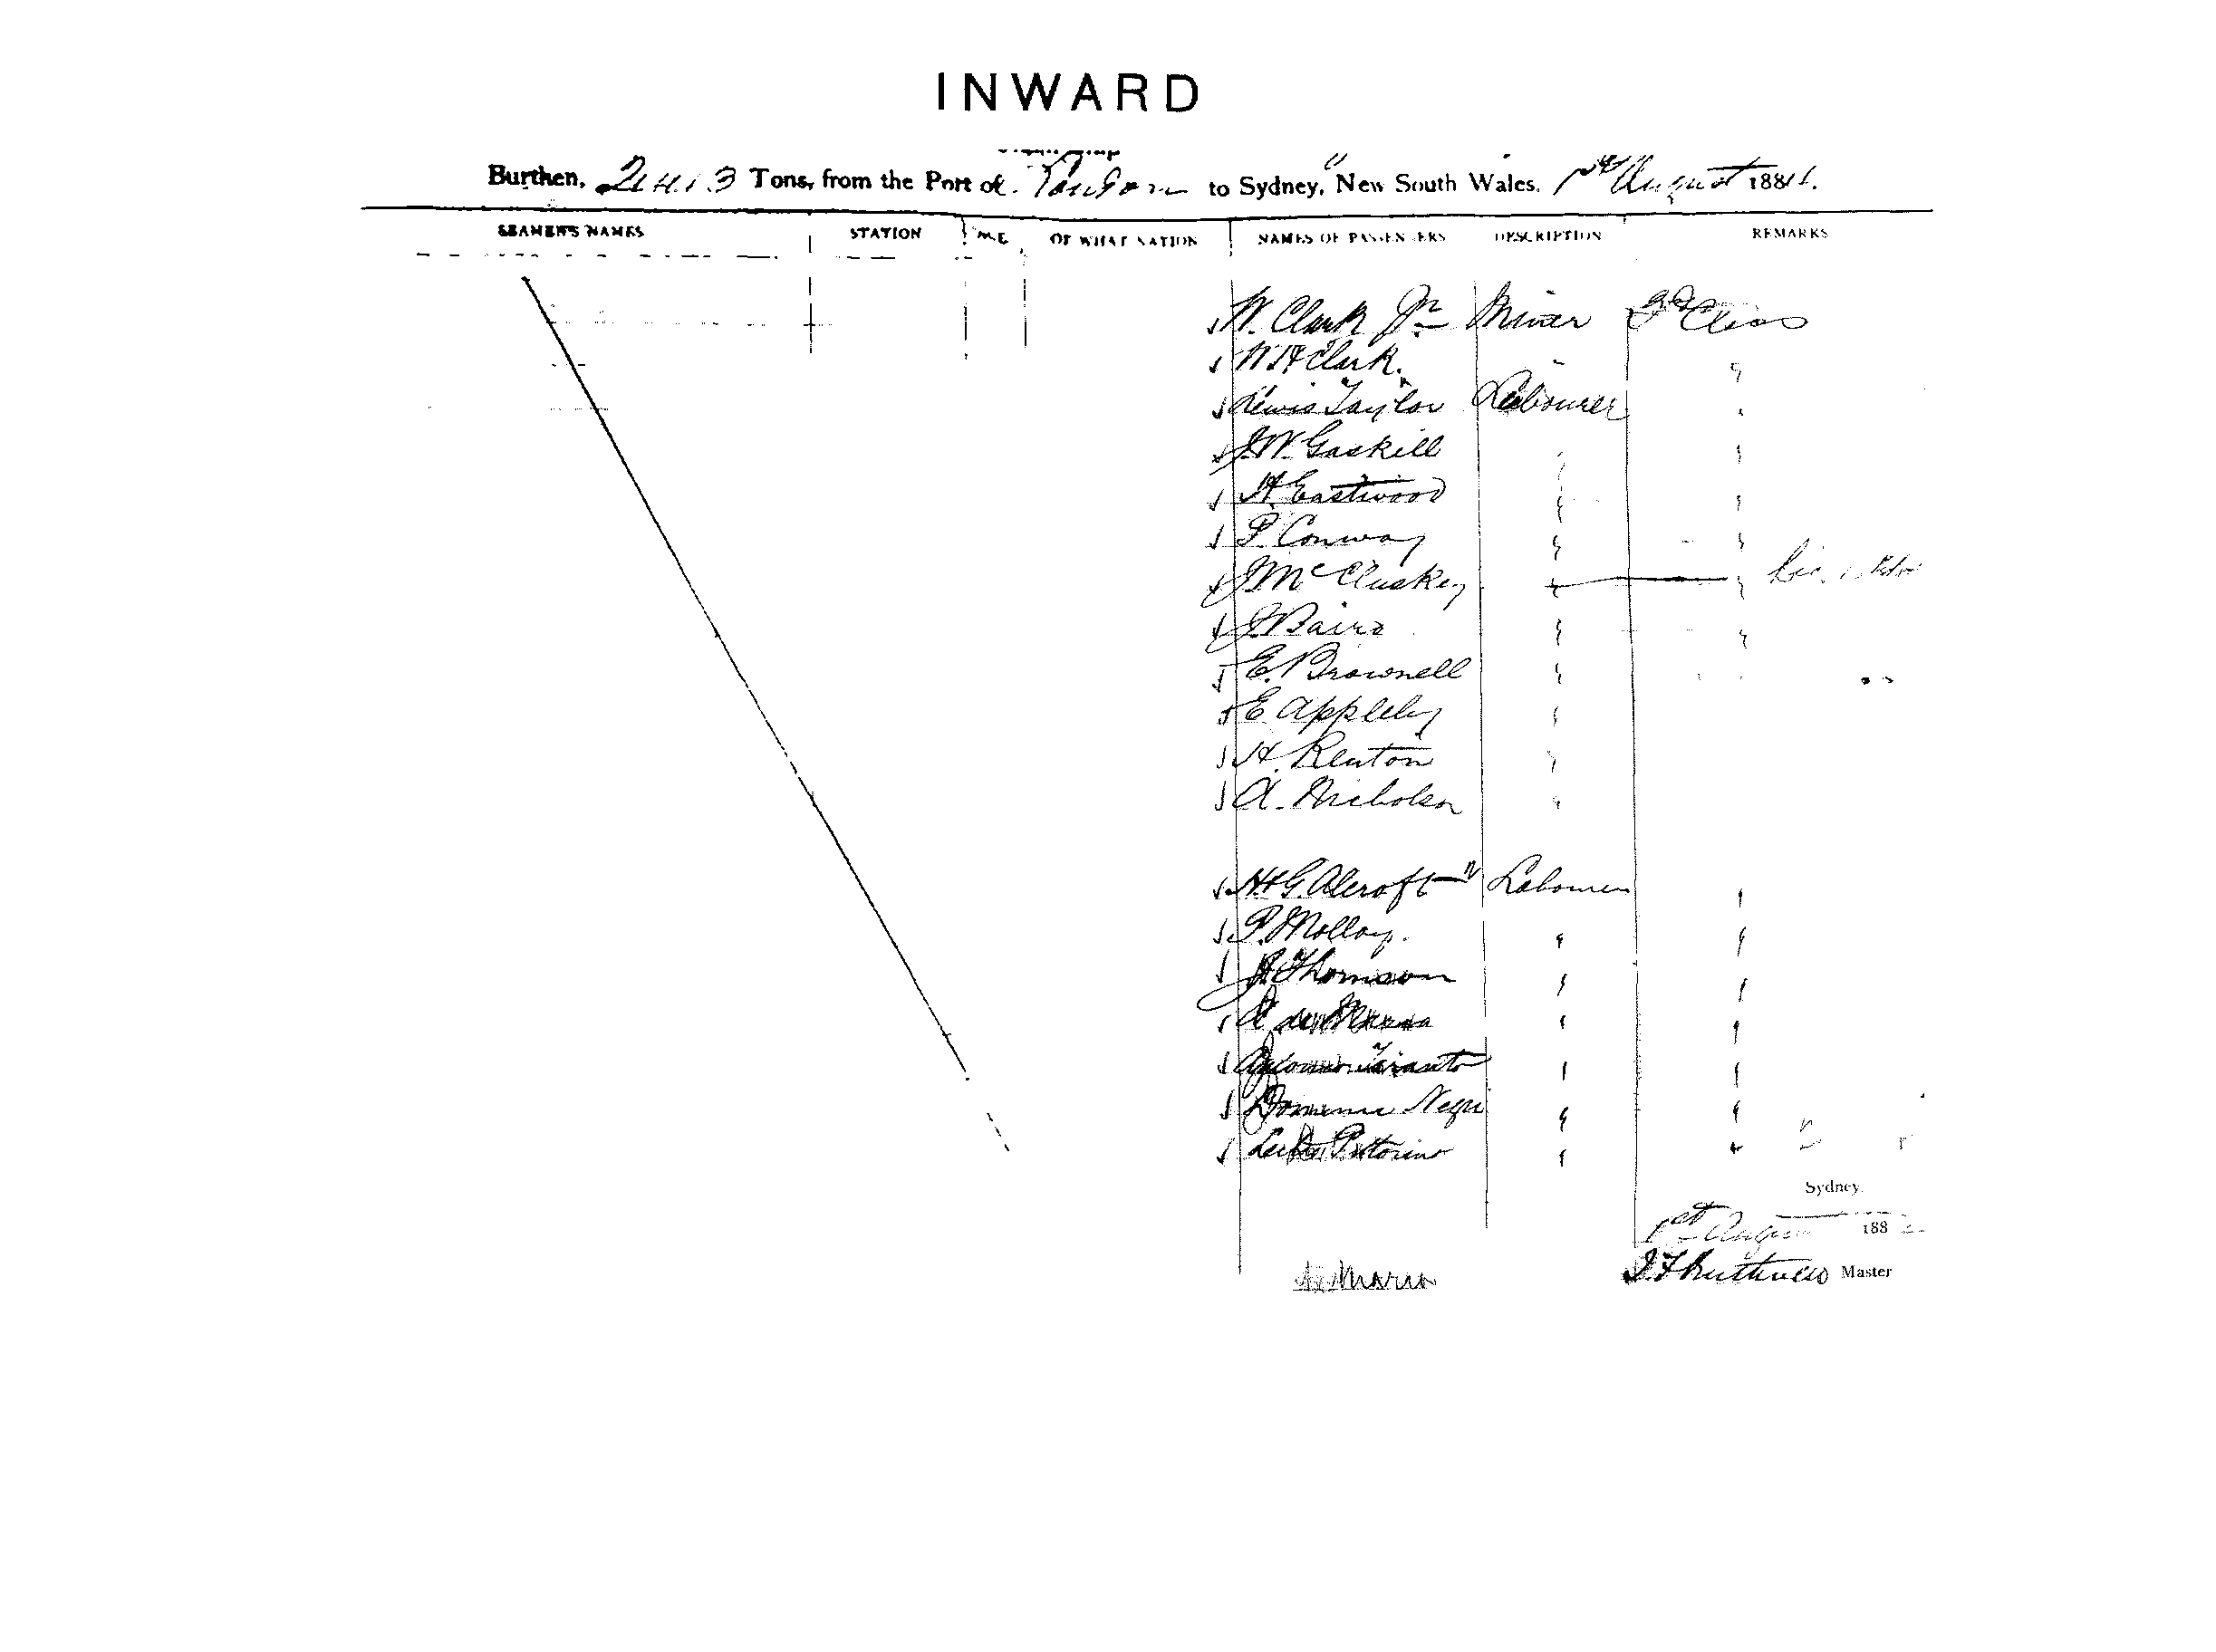 INWARD
Burthen, 2413 Tons, from the Port of London to Sydney, New South Wales, 1st August 188
SEAMEN'S NAMES STATION AGE OF WHAT NATION NAMES OF PASSENGERS DESCRIPTION REMARKS
W. Clark Jr Miner 3rd Class
W H Clark. " "
Lewis Taylor Labourer "
J. W. Gaskill " "
H Eastwood " "
P. Conway " "
J McCluskey " "
J Baird " "
E. Brownell "
E Appleby "
H. Renton "
A. Nicholson "
H G. Alcroft Labourer "
P. Molloy. " "
J Thomson " "
" "
Taranto " "
Negri " "
" "
Sydney,
1st August 188
Master